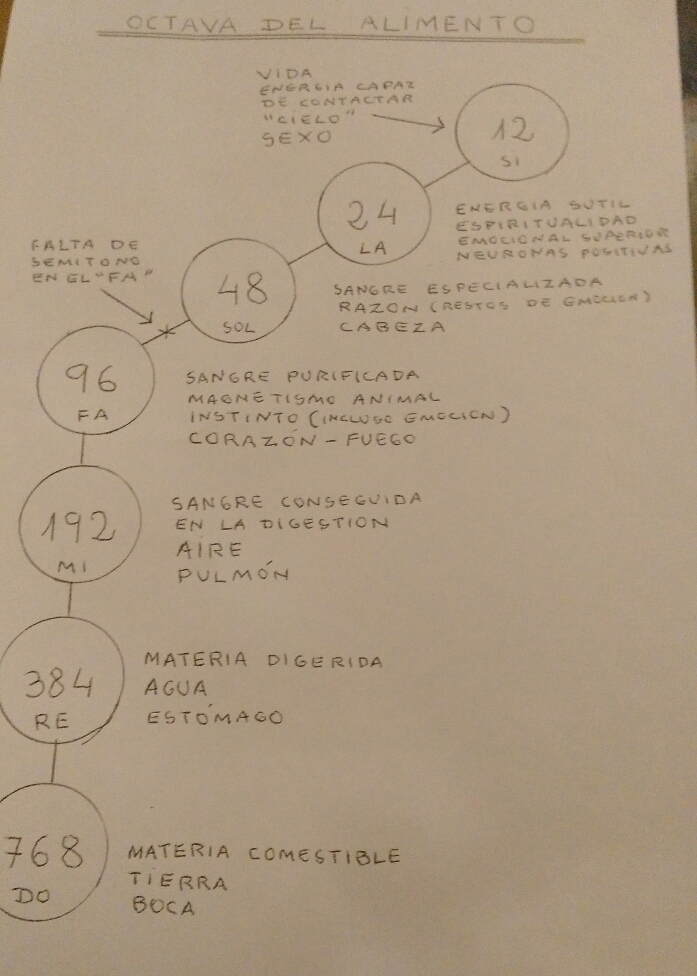 OCTAVA DEL ALIMENTO
VIDA
ENERGIA CAPAZ
DE CONTACTAR
"CIELO"
SEXO
12
SI
24
LA
ENERGIA SUTIL
ESPIRITUALIDAD
EMOCIONAL SUPERIOR
NEURONAS POSITIVAS
FALTA DE
SEMITONO
EN EL "FA"
48
SOL
SANGRE ESPECIALIZADA
RAZON (RESTOS DE EMOCION)
CABEZA
96
FA
SANGRE PURIFICADA
MAGNETISMO ANIMAL
INSTINTO (INCLUSO EMOCION)
CORAZÓN - FUEGO
192
MI
SANGRE CONSEGUIDA
EN LA DIGESTION
AIRE
PULMÓN
384
RE
MATERIA DIGERIDA
AGUA
ESTÓMAGO
768
DO
MATERIA COMESTIBLE
TIERRA
BOCA